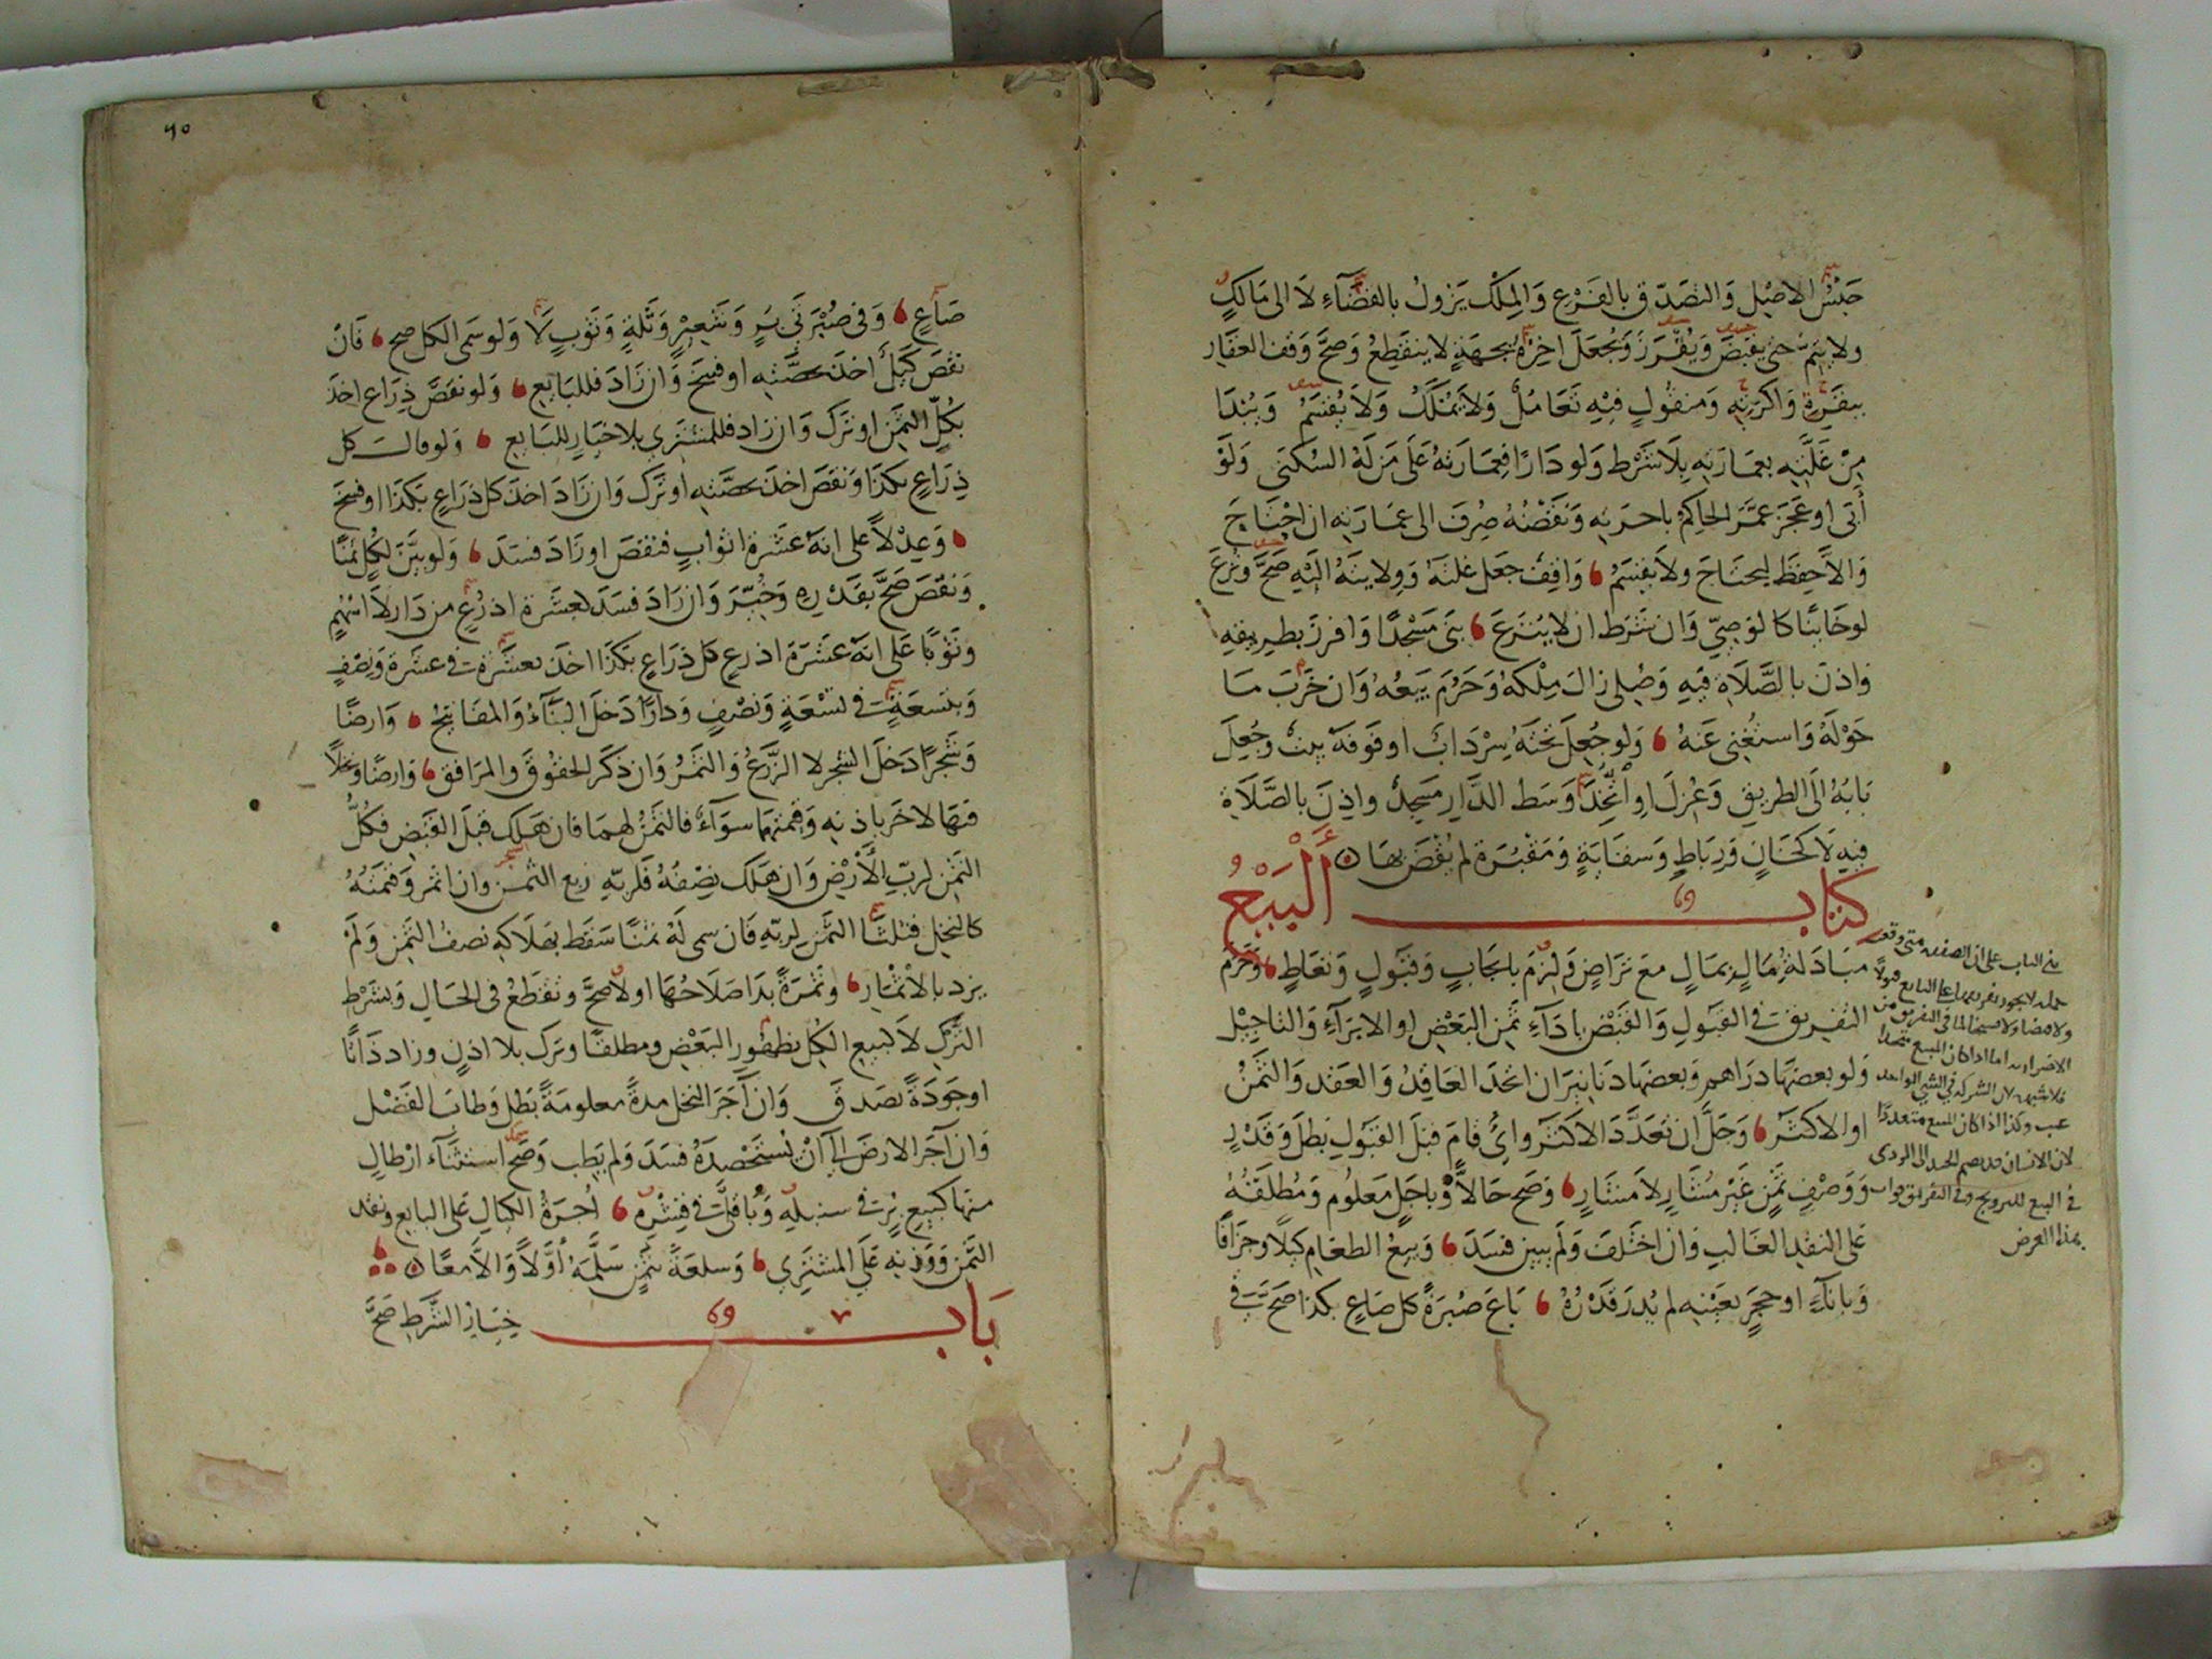 حَبْسُ الاصْلِ وَالتَصَدّق بالفَرْعِ وَالمِلكُ يَزولُ بالقضَآءِ لَا الى مَالكٍ
ولا يتِمُّ حتى يقبَضَ وَيُفْرَزَ وَيُجعَلَ اخِرُهُ بجهَةٍ لا ينقَطِعُ وَصَحَّ وَقف العقَارِ
ببقَرِهِ وَاكرَتِهِ وَمنقُولٍ فيْهِ تَعَامُلٌ وَلَا يُمْلَكُ وَلَا يُقسَمُ وَيُبْدَا
مِنْ غَلَّتِهِ بعمَارَتِهِ بِلَا شَرْط وَلو دَارًا فعِمَارَتهُ عَلَى مَن لَهُ السُّكنى وَلَوْ
أبَى او عَجَزَ عمَّرَ الحَاكِمُ باجرَتِهِ وَنَقْضُهُ صُرِفَ الى عمَارَتِهِ ان احْتَاجَ
وَالاَّ حفِظَ ليحتَاجَ ولَا يقسَمُ وَاقِفٌ جعَل غلتَهُ وَوِلايتَهُ اليْهِ صَحَّ ونُزعَ
لو خَائنًا كالوَصِيّ وَان شَرَط ان لا يُنْزعَ بنَى مَسْجدًا وَافرزَ بطريقِهِ
وَاذنَ بالصَّلَاةِ فيْهِ وَصُلي زالَ مِلْكهُ وَحَرُمَ بَيعُهُ وَان خَرَبَ مَا
حَوْلَهُ وَاستغْنِى عَنهُ وَلو جُعِلَ تحْتَهُ سِرْدَابٌ او فَوقهُ بيتٌ وجُعِلَ
بَابُهُ الَى الطريقِ وَعُزلَ اوِ اتُّخِذَ وَسَط الدَّارِ مَسجِدٌ واذِنَ بالصَّلَاةِ
فيهِ لَا كخَانٍ وَرِبَاطٍ وَسقَايَةٍ وَمَقْبُرَةٍ لم يُقْضَ بهَا
كتاب البَيْعُ
مبَادَلةُ مَالٍ بمَالٍ معَ تَرَاضٍ وَلزِمَ بايجَابٍ وَقبُولٍ وَتعَاطٍ وَحَرُمَ
التفريق في القبُولِ وَالقَبْضْ بادَآءِ ثمَنِ البعْضِ او الابرَآءِ وَالتاجِيْل
وَلو بعضهَا دَرَاهم وَبعضهَا دنَانيرَ ان اتحدَ العَاقِدُ وَالعَقد وَالثمَنُ
او الاكثَرُ وَجَلَّ ان تعَدَّدَ الاكثَرُ وائٌ قامَ قبْلَ القبُولِ بَطَلَ وَقَدْرٍ
وَوَصْفِ ثمَنٍ غَيْرِ مُشارٍ لَا مشَارٍ وَصَحَ حَالاًّ وَباجَلٍ مَعلُوم وَمُطلَقُهُ
عَلى النقدِ الغَالب وَان اختَلفَ وَلم يبين فسَدَ وَبيعُ الطعَامِ كيْلًا وجزَافًا
وَبانآءٍ اوحجَرٍ بعَيْنِهِ لم يُدْرَ قَدْرُهُ بَاعَ صُبْرَةً كل صَاعٍ بكذا صَحَّ في
بني الباب على ان الصفقة متى وقعت
لان الانسان قد يضم الجيد الى الردي
في البيع للترويج وفي التفريق فوات
هذا الغرض
٩٥
صَاعٍ وَفى صُبْرَتَي بُرٍ وَشعِيْرٍ وَثَلةٍ وَثوبٍ لَا وَلو سَمى الكل صح فَان
نقصَ كَيْلٌ اخذ بحصَّتِهِ او فسخَ وَان زَادَ فللبَايعِ وَلو نقصَ ذِرَاع اخذ
بكُلّ الثمَن او ترَك وَان زاد فللمشترِي بلا خيَارٍ للبَايع وَلو قالت كل
ذِرَاعٍ بكذَا وَنقصَ اخذ بحصَّتِهِ او ترَك وَان زَادَ اخذَ كل ذرَاعٍ بكذَا او فسخَ
وَعِدْلًا على انهُ عشَرة اثوابٍ فنقصَ اوزَادَ فسَدَ وَلو بيَّنَ لكُلٍ ثمَنًا
وَنقصَ صَحَّ بقَدْرِهِ وَخُيّرَ وَان زَادَ فسَدَ لعشَرة اذرُعٍ من دَار لَا اسْهُمٍ
وثوْبًا عَلى انهُ عَشَرَة اذرعٍ كل ذرَاعٍ بكذا اخذ بعشَرة في عشَرة وَنِصْفٍ
وَبتسعَةٍ في تسْعَةٍ وَنصْفٍ وَدَارًا دَخلَ البنَآءُ وَالمفَاتيحُ وَارضًا
وَشجَرًا دَخلَ الشجر لا الزَّرْعُ وَالثمَرُ وَان ذكرَ الحقُوق وَالمرَافق وَارضًا ونخلًا
فهَمَا لاخَر باذنِهِ وَقيمَتهمَا سوَآءٌ فالثمَنُ لهمَا فان هَلك قبلَ القبْضِ فكُلُّ
الثمَنِ لربّ الأرْضِ وَان هَلك نصْفُهُ فلِرَبّهِ ربع الثمن وان اثمر وَقيمَتُهُ
كالنخِل فثلثَا الثمَن لربّهِ فان سمى لَهُ ثمَنًا سَقط بهَلاكهِ نصفُ الثمَن وَلم
يزد بالاثمَار وثمَرَةً بَدَا صَلَاحُهَا اولًا صحَّ وتقطَعُ في الحَال وَبشَرْط
التَرْكِ لَا كبيع الكُلّ بظهُورِ البَعْض ومطلقًا وترَك بلا اذنٍ وزاد ذَاتًا
اوجَودَةً تصَدق وَان آجَرَ النخل مدةً معلومَةً بَطل وَطابَ الفَضْل
وَان آجَرَ الارضَ الى اَنْ يُسْتَحْصَدَ فسَدَ وَلم يَطِب وَصَحَّ استثنَآء ارْطالٍ
منهَا كبيعِ بُرٍ في سنبلِهِ وَبَاقلَى في قِشْرِهِ اُجرَةُ الكيالِ عَلى البايع ونقد
الثَمَن وَوَزنِهِ عَلى المشترِي وَسلعَةً بثمَنٍ سَلمَهُ اوَّلًا وَالاَّ معًا
بَاب خيَارُ الشَّرطِ صَحَّ